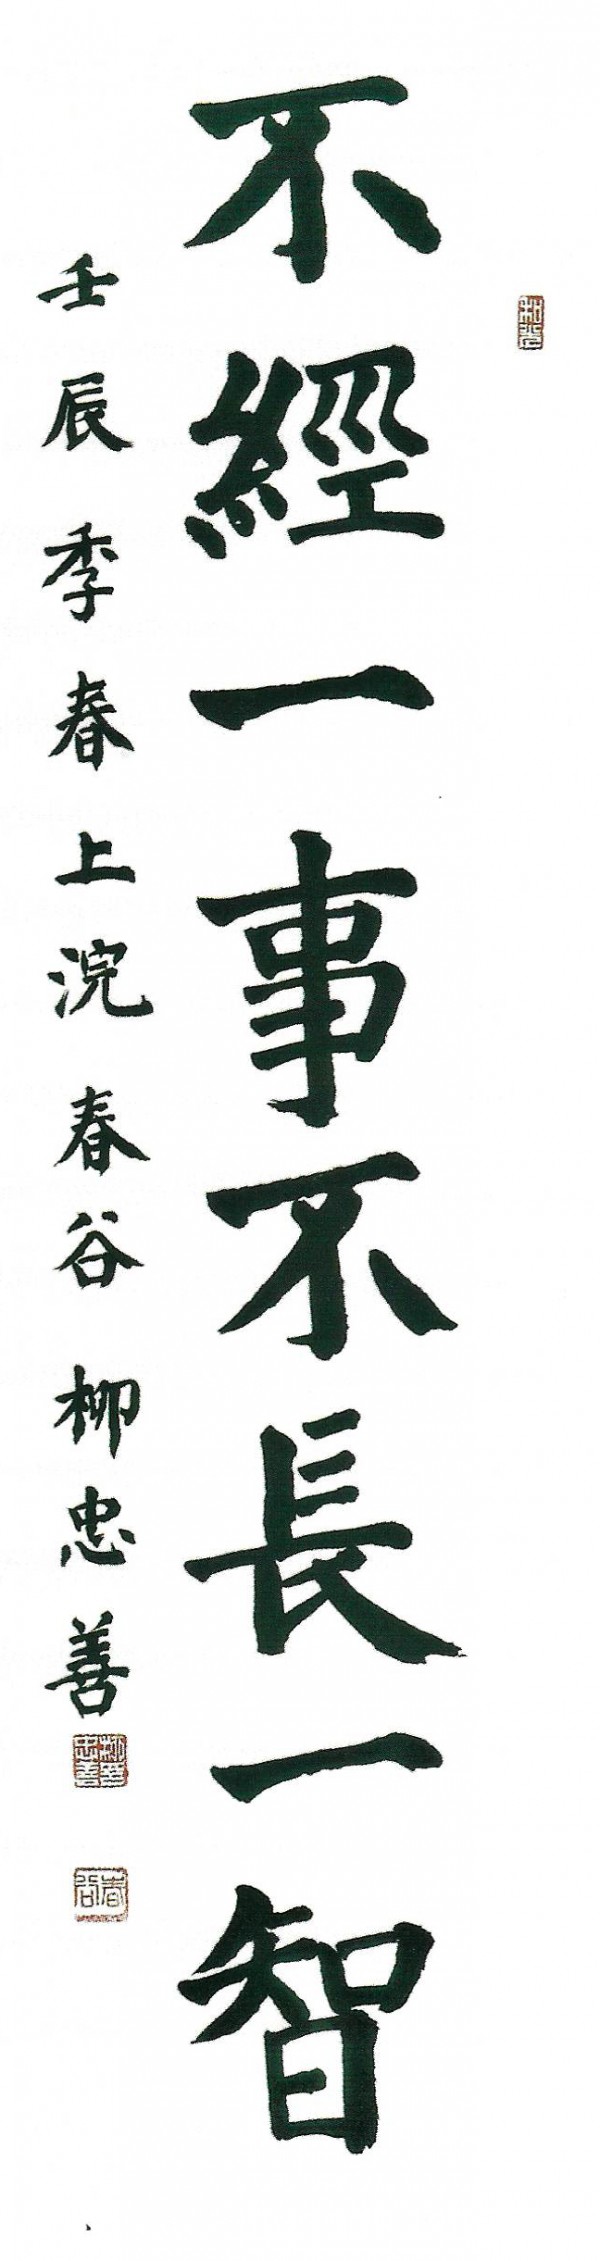 不經一事不長一智
壬辰季春上浣春谷 柳忠善
春谷